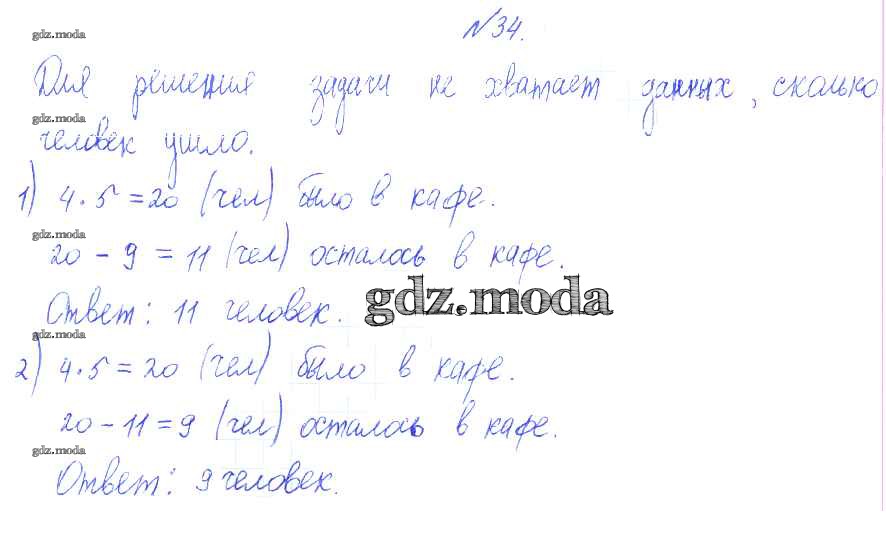 №34.
gdz.moda
Для решения задачи не хватает данных, сколько
gdz.moda
человек ушло.
1) 4·5=20 (чел) было в кафе.
gdz.moda
20-9=11 (чел) осталось в кафе.
gdz.moda
Ответ: 11 человек.
gdz.moda
2) 4·5=20 (чел) было в кафе.
20-11=9 (чел) осталось в кафе.
gdz.moda
Ответ: 9 человек.